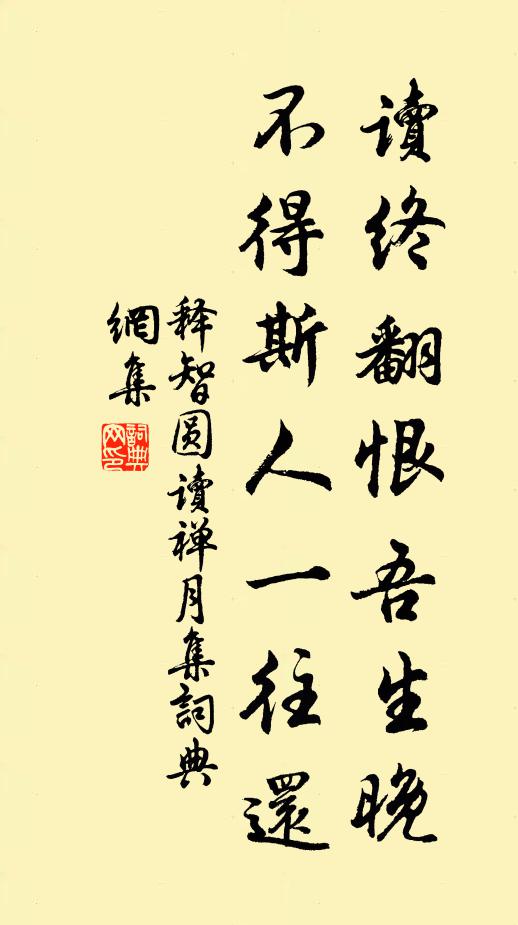 讀終翻恨吾生晚
不得斯人一往還
释智圆讀禅月集詞典
網集
詞典
网印